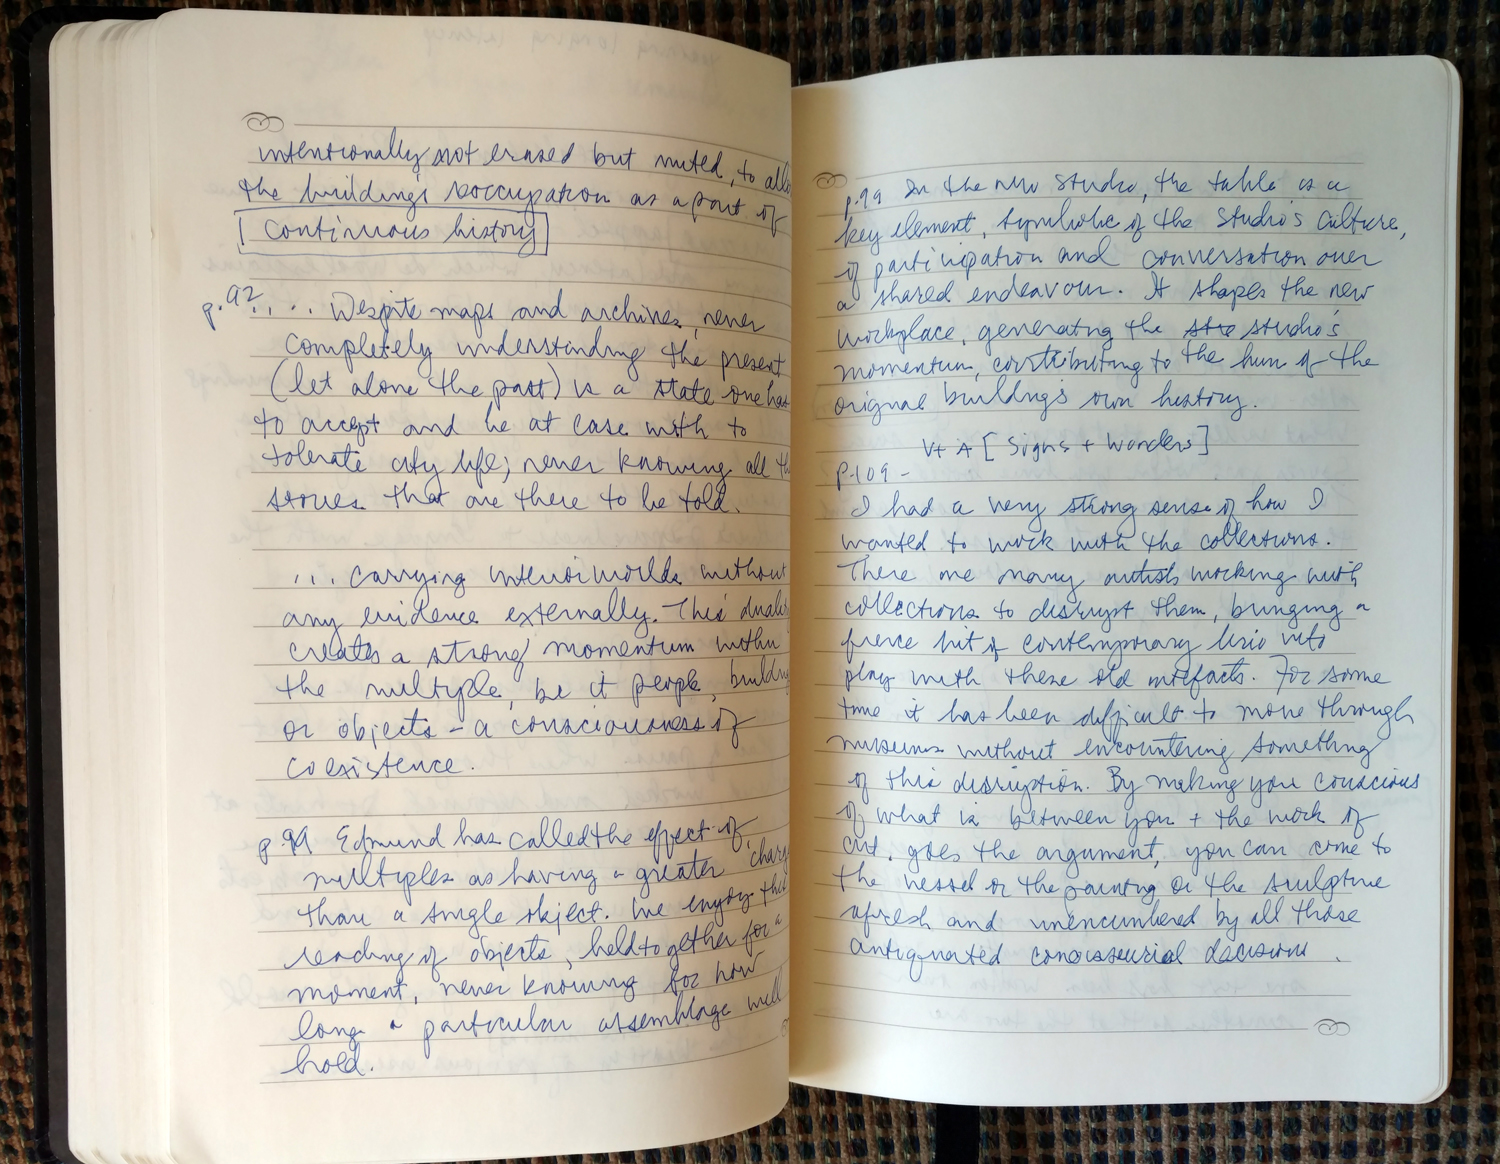 intentionally not erased but muted, to allo
the building's reoccupation as a part of
continuous history
p.92 ... Despite maps and archives, never
completely understanding the present
(let alone the past) is a state one has
to accept and be at ease with to
tolerate city life; never knowing all th
stories that are there to be told.
... carrying interior worlds without
any evidence externally. This duality
creates a strong momentum within
the multiple, be it people, building
or objects - a consciousness of
coexistence.
p.99 Edmund has called the effect of
multiples as having a greater 'charg
than a single object. We enjoy this
reading of objects, held together for a
moment, never knowing for how
long a particular assemblage will
hold.
p.99 In the new studio, the table is a
key element, symbolic of the studio's culture,
of participation and conversation over
a shared endeavour. It shapes the new
workplace, generating the stu studio's
momentum, contributing to the hum of the
original building's own history.
V+A [Signs + Wonders]
p.109 -
I had a very strong sense of how I
wanted to work with the collections.
There are many artists working with
collections to disrupt them, bringing a
fierce bit of contemporary brio into
play with these old artefacts. For some
time it has been difficult to move through
museums without encountering something
of this disruption. By making you conscious
of what is between you + the work of
art, goes the argument, you can come to
the vessel or the painting or the sculpture
afresh and unencumbered by all those
antiquated connoisseurial decisions.